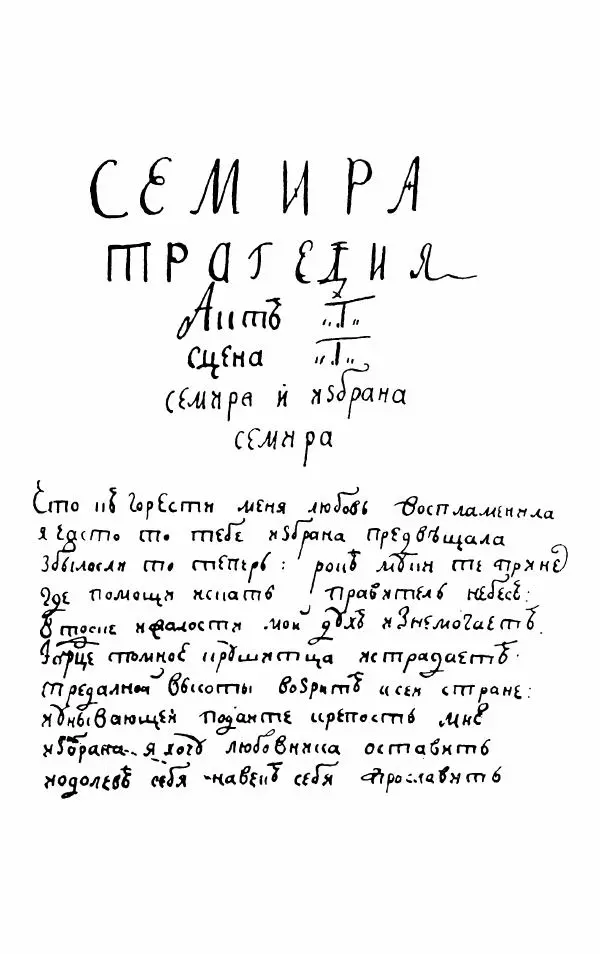 СЕМИРА
ТРАГЕДИЯ
Актъ „I“
сцена „I“
семира и избрана
семира
Что къ горести меня любовь воспламенила
я часто то тебе избрана предвѣщала
Збылосли то теперь: рокъ мои
где помощи искать правитель небесъ:
В тоске и жалости мой духъ изнемогаетъ
серце томное крушитца истрадаетъ
предалной высоты возритъ ксеи стране:
и унывающей подаите крепость мне
избрана я хочу любовника оставить
иодолевъ себя навекъ себя прославить